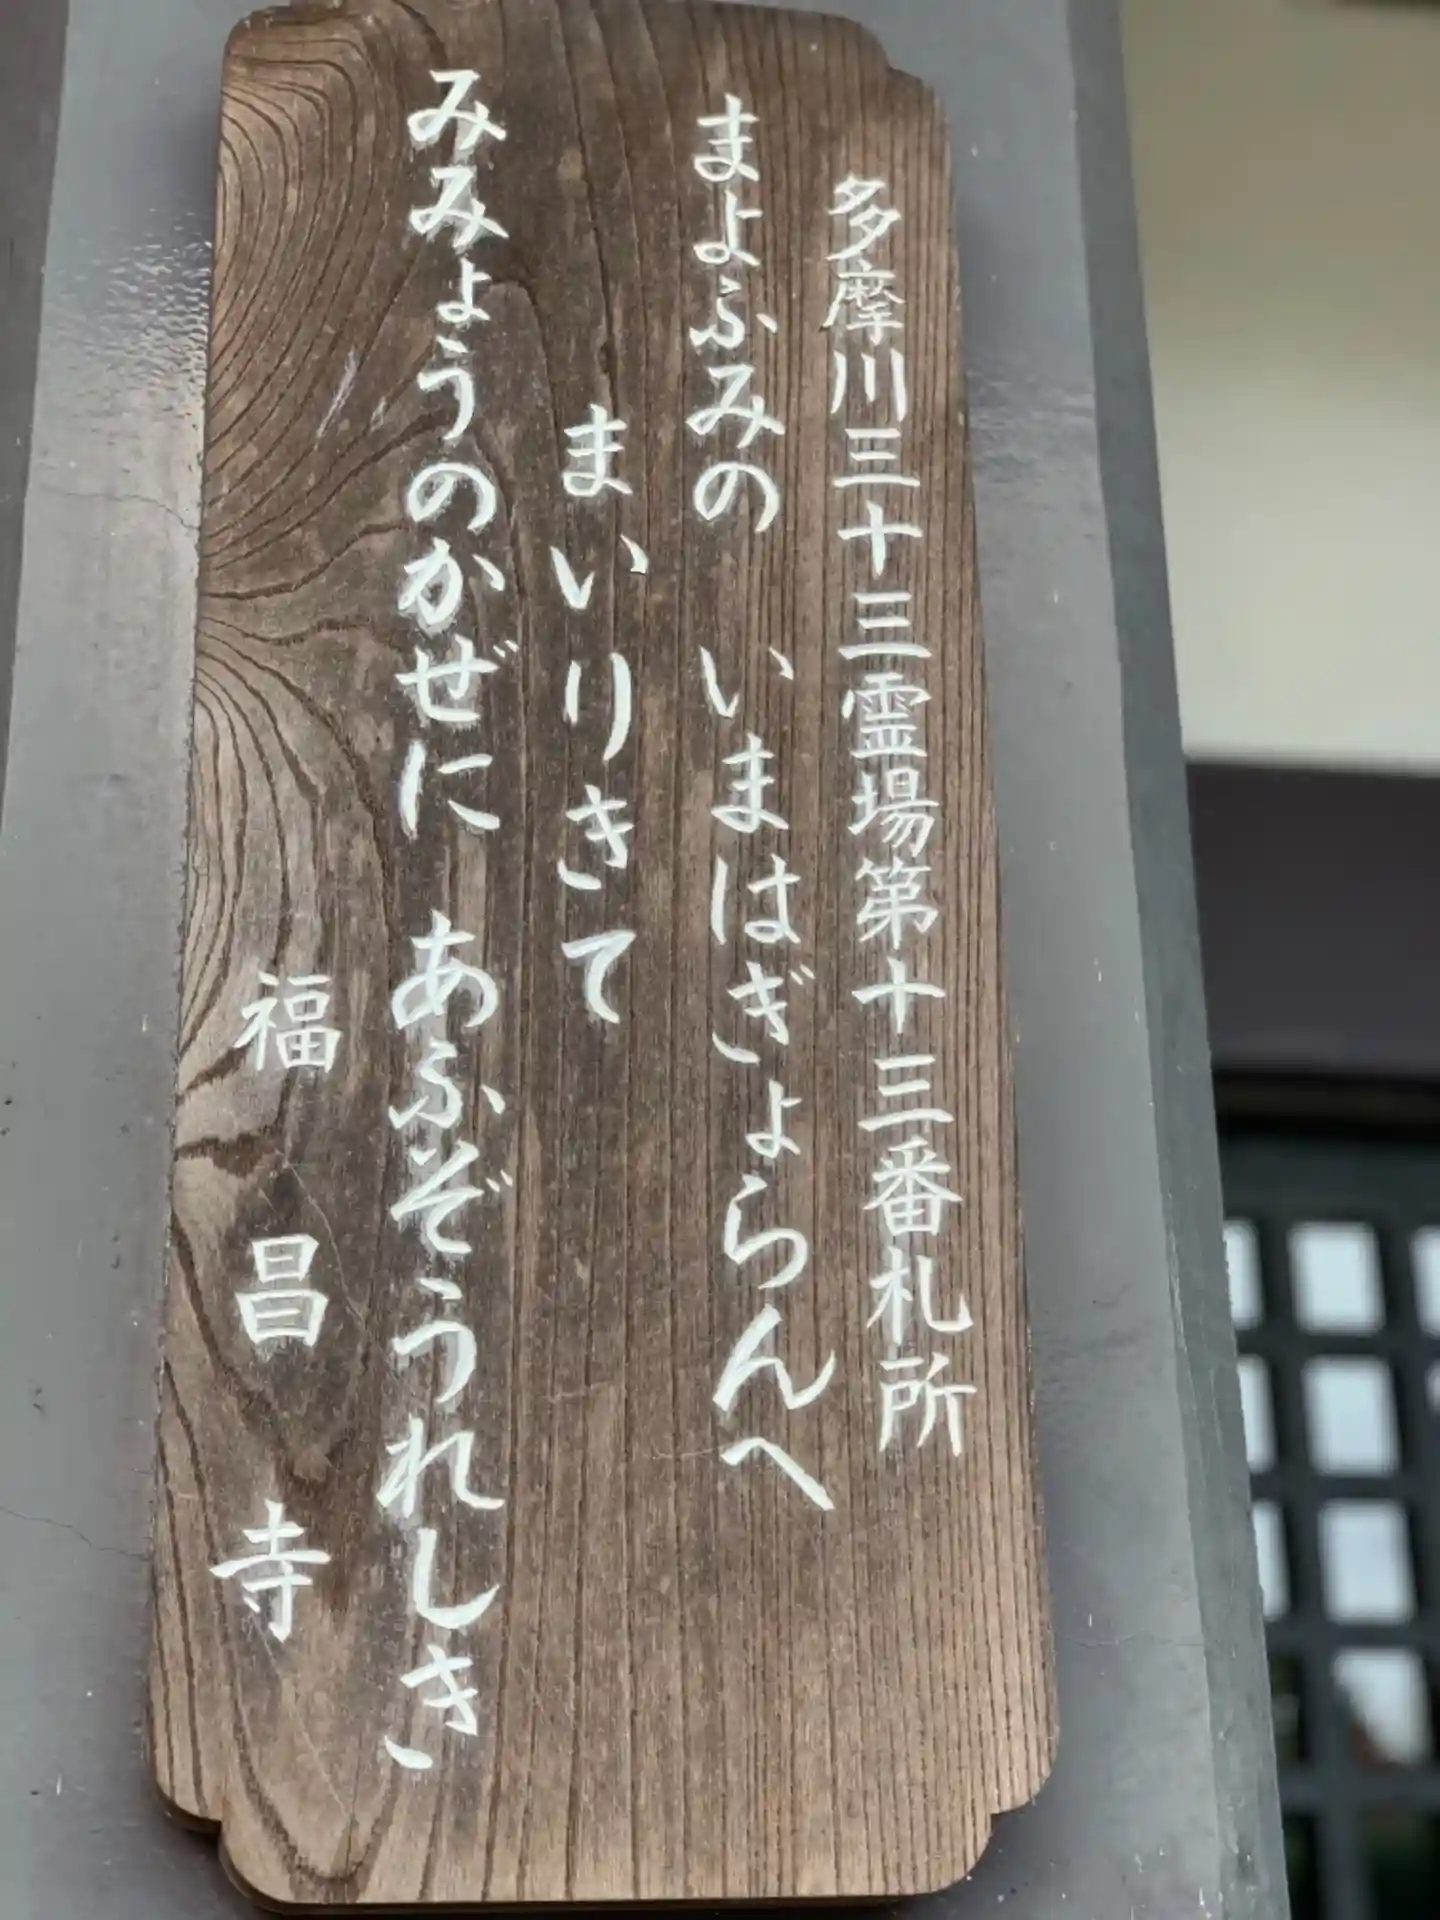 多摩川三十三霊場第十三番札所
まよふみの いまはぎょらんへ
まいりきて
みみょうのかぜに あふぞうれしき
福昌寺